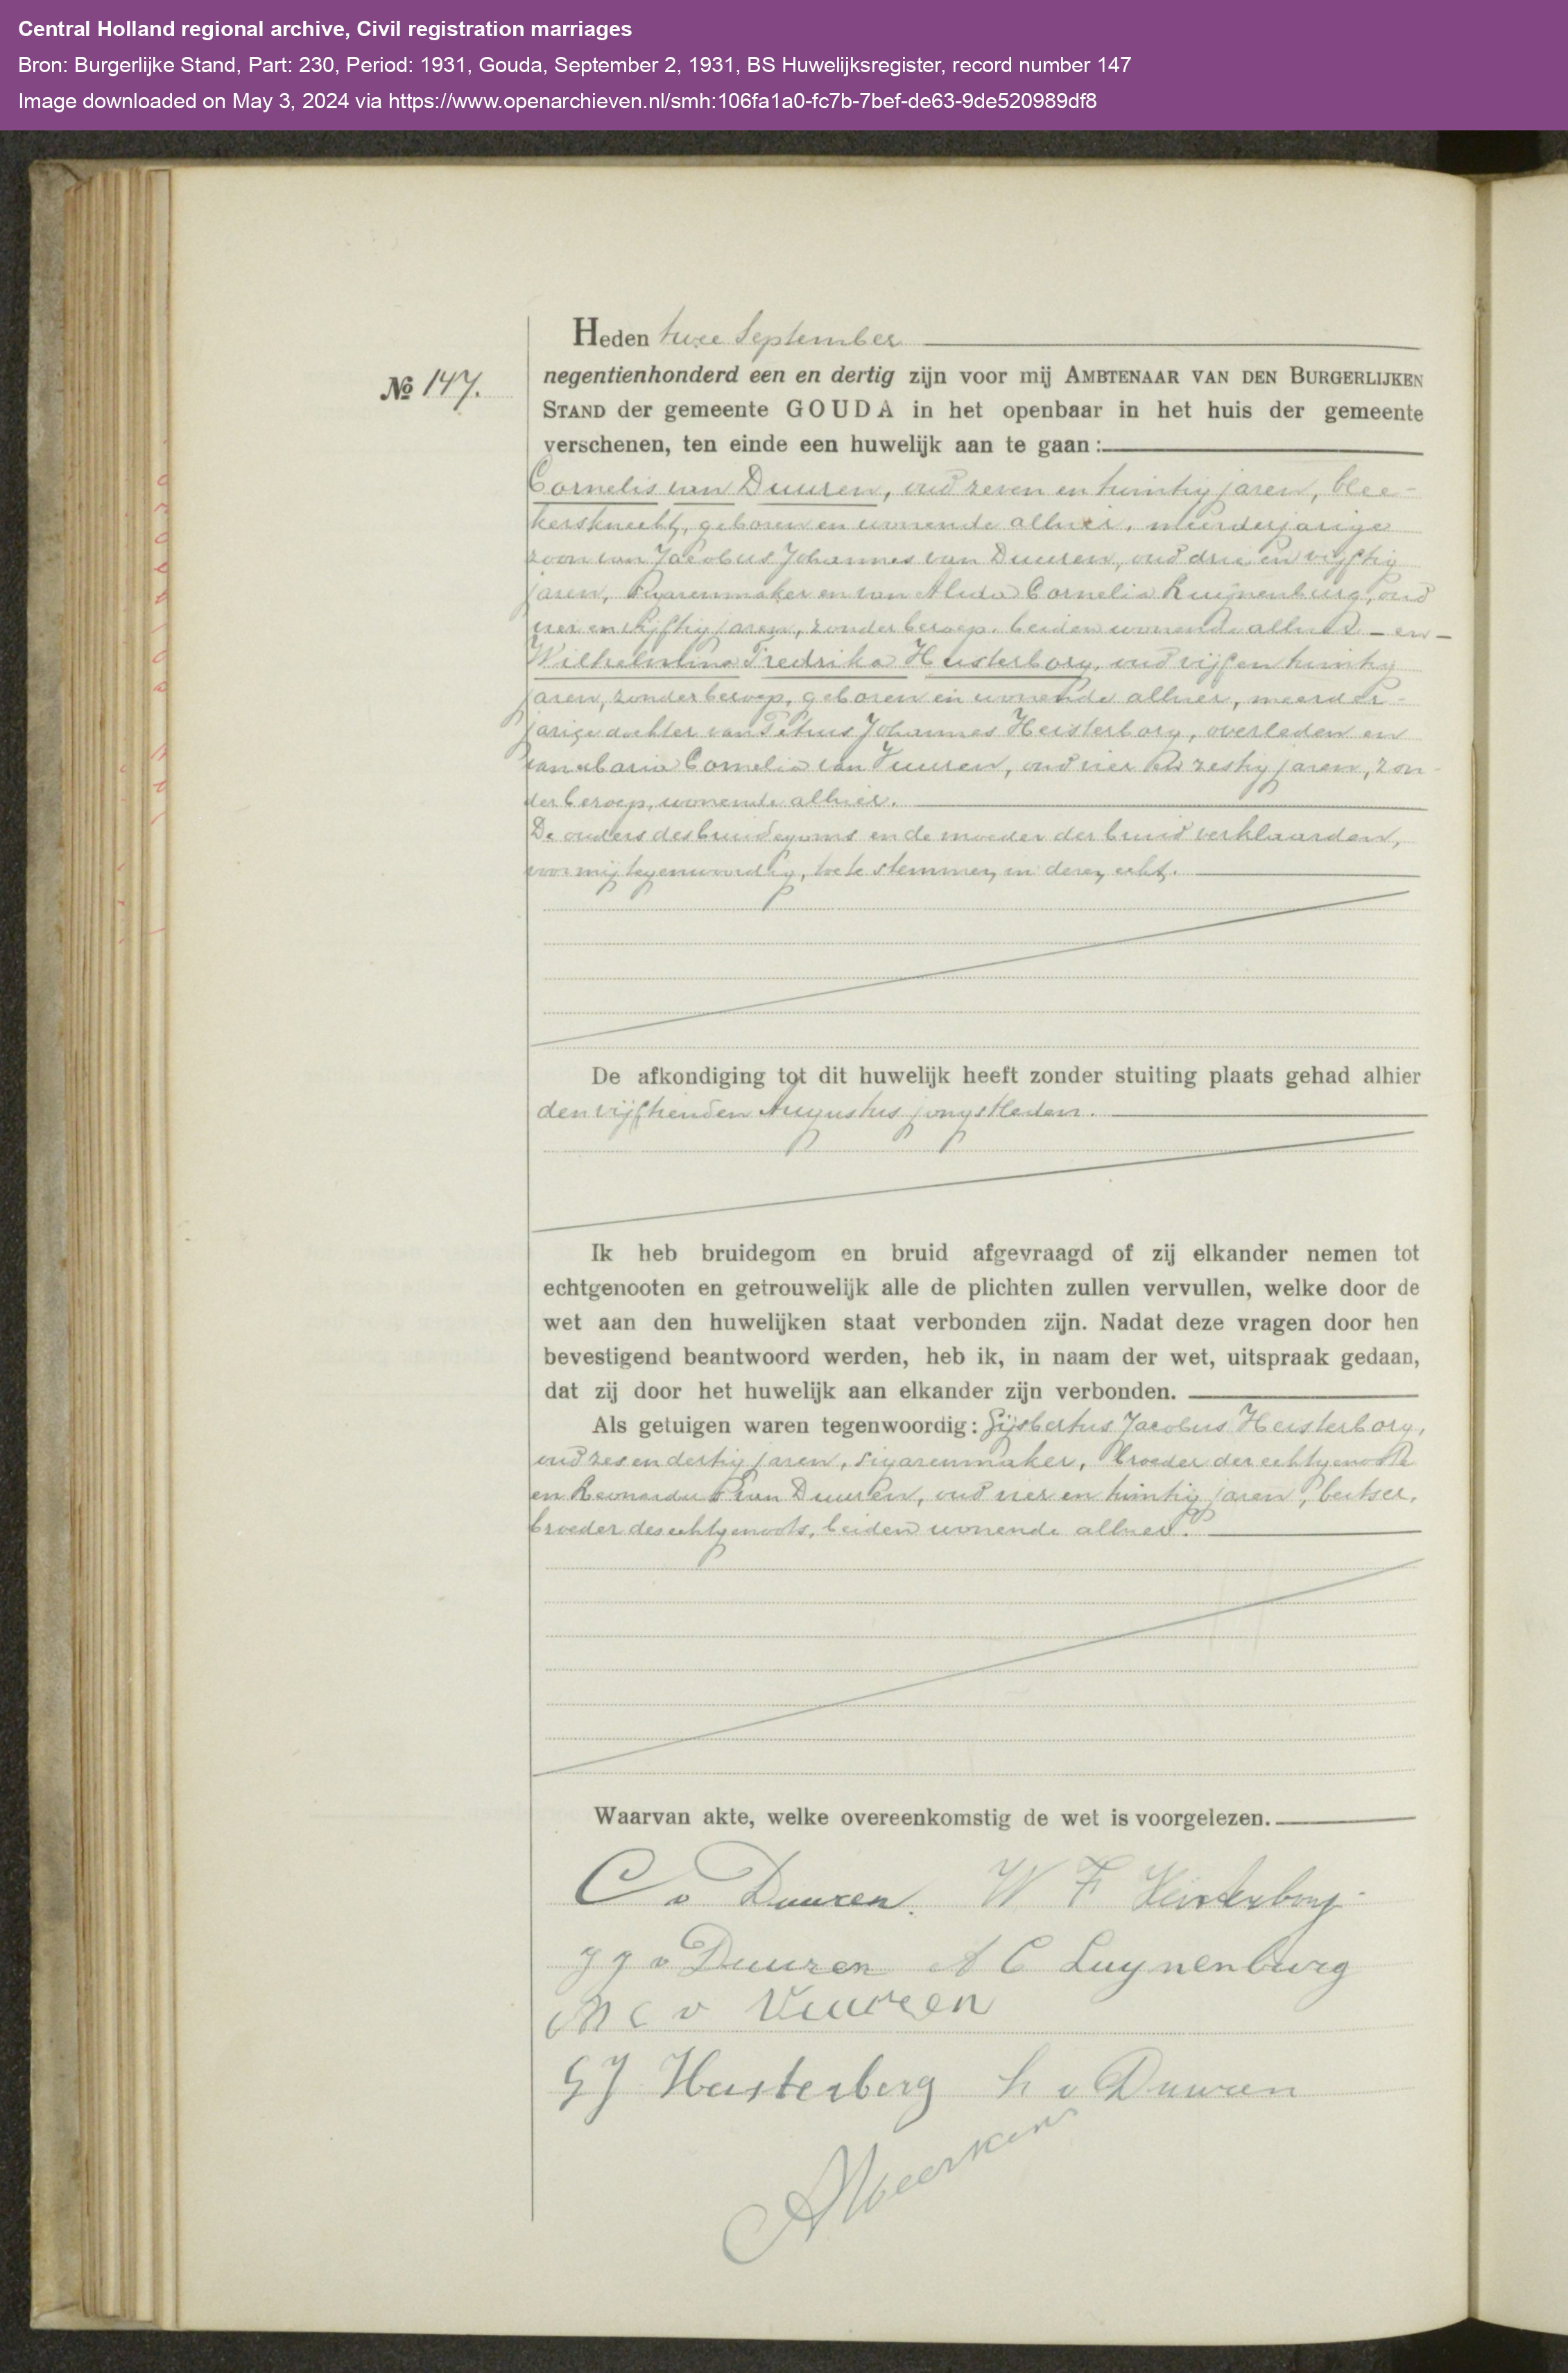 Central Holland regional archive, Civil registration marriages
Bron: Burgerlijke Stand, Part: 230, Period: 1931, Gouda, September 2, 1931, BS Huwelijksregister, record number 147
Image downloaded on May 3, 2024 via https://www.openarchieven.nl/smh:106fa1a0-fc7b-7bef-de63-9de520989df8
Heden twee September
№ 147.
negentienhonderd een en dertig zijn voor mij AMBTENAAR VAN DEN BURGERLIJKEN
STAND der gemeente GOUDA in het openbaar in het huis der gemeente
verschenen, ten einde een huwelijk aan te gaan:
Cornelis van Duuren, oud zeven en twintig jaren, blee-
kersknecht, geboren en wonende alhier, meerderjarige
zoon van Jacobus Johannes van Duuren, oud drie en vijftig
jaren, sigarenmaker en van Alida Cornelia Luijnenburg, oud
vier en vijftig jaren, zonder beroep, beiden wonende alhier - en -
Wilhelmina Fredrika Heisterborg, oud vijf en twintig
jaren, zonder beroep, geboren en wonende alhier, meerder-
jarige dochter van Petrus Johannes Heisterborg, overleden en
van Maria Cornelia van Vuuren, oud vier en zestig jaren, zon-
der beroep, wonende alhier.
De ouders des bruidegoms en de moeder der bruid verklaarden,
voor mij tegenwoordig, toe te stemmen in dezen echt.
De afkondiging tot dit huwelijk heeft zonder stuiting plaats gehad alhier
den vijftienden Augustus jongstleden.
Ik heb bruidegom en bruid afgevraagd of zij elkander nemen tot
echtgenooten en getrouwelijk alle de plichten zullen vervullen, welke door de
wet aan den huwelijken staat verbonden zijn. Nadat deze vragen door hen
bevestigend beantwoord werden, heb ik, in naam der wet, uitspraak gedaan,
dat zij door het huwelijk aan elkander zijn verbonden.
Als getuigen waren tegenwoordig: Gijsbertus Jacobus Heisterborg,
oud zes en dertig jaren, sigarenmaker, broeder der echtgenoote
en Leonardus van Duuren, oud vier en twintig jaren, beitser,
broeder des echtgenoots, beiden wonende alhier.
Waarvan akte, welke overeenkomstig de wet is voorgelezen.
C v Duuren. W F Heisterborg
J J v Duuren A C Luynenburg
M C v Vuuren
G J Heisterberg L v Duuren